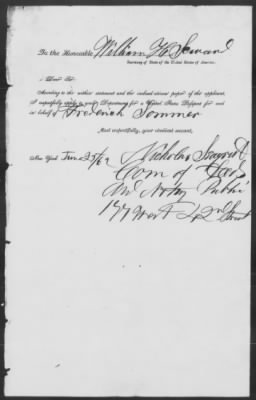 To the Honorable William H Seward
Secretary of State of the United States of America.
Dear Sir:
According to the within statement and the evident citizen paper of the applicant,
I respectfully apply to your Department for a United States Passport for and
in behalf of Frederick Sommer
Most respectfully, your obedient servant,
New York June 25/62 Nicholas
Com of
And Notry Public
177 West 42nd Street